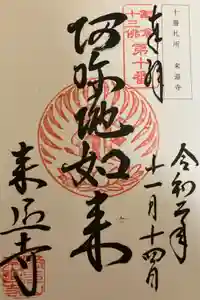 十番札所 来迎寺
奉拝
鎌倉
十三佛
第十番
阿弥陀如来
令和二年
十一月十四日
来迎寺